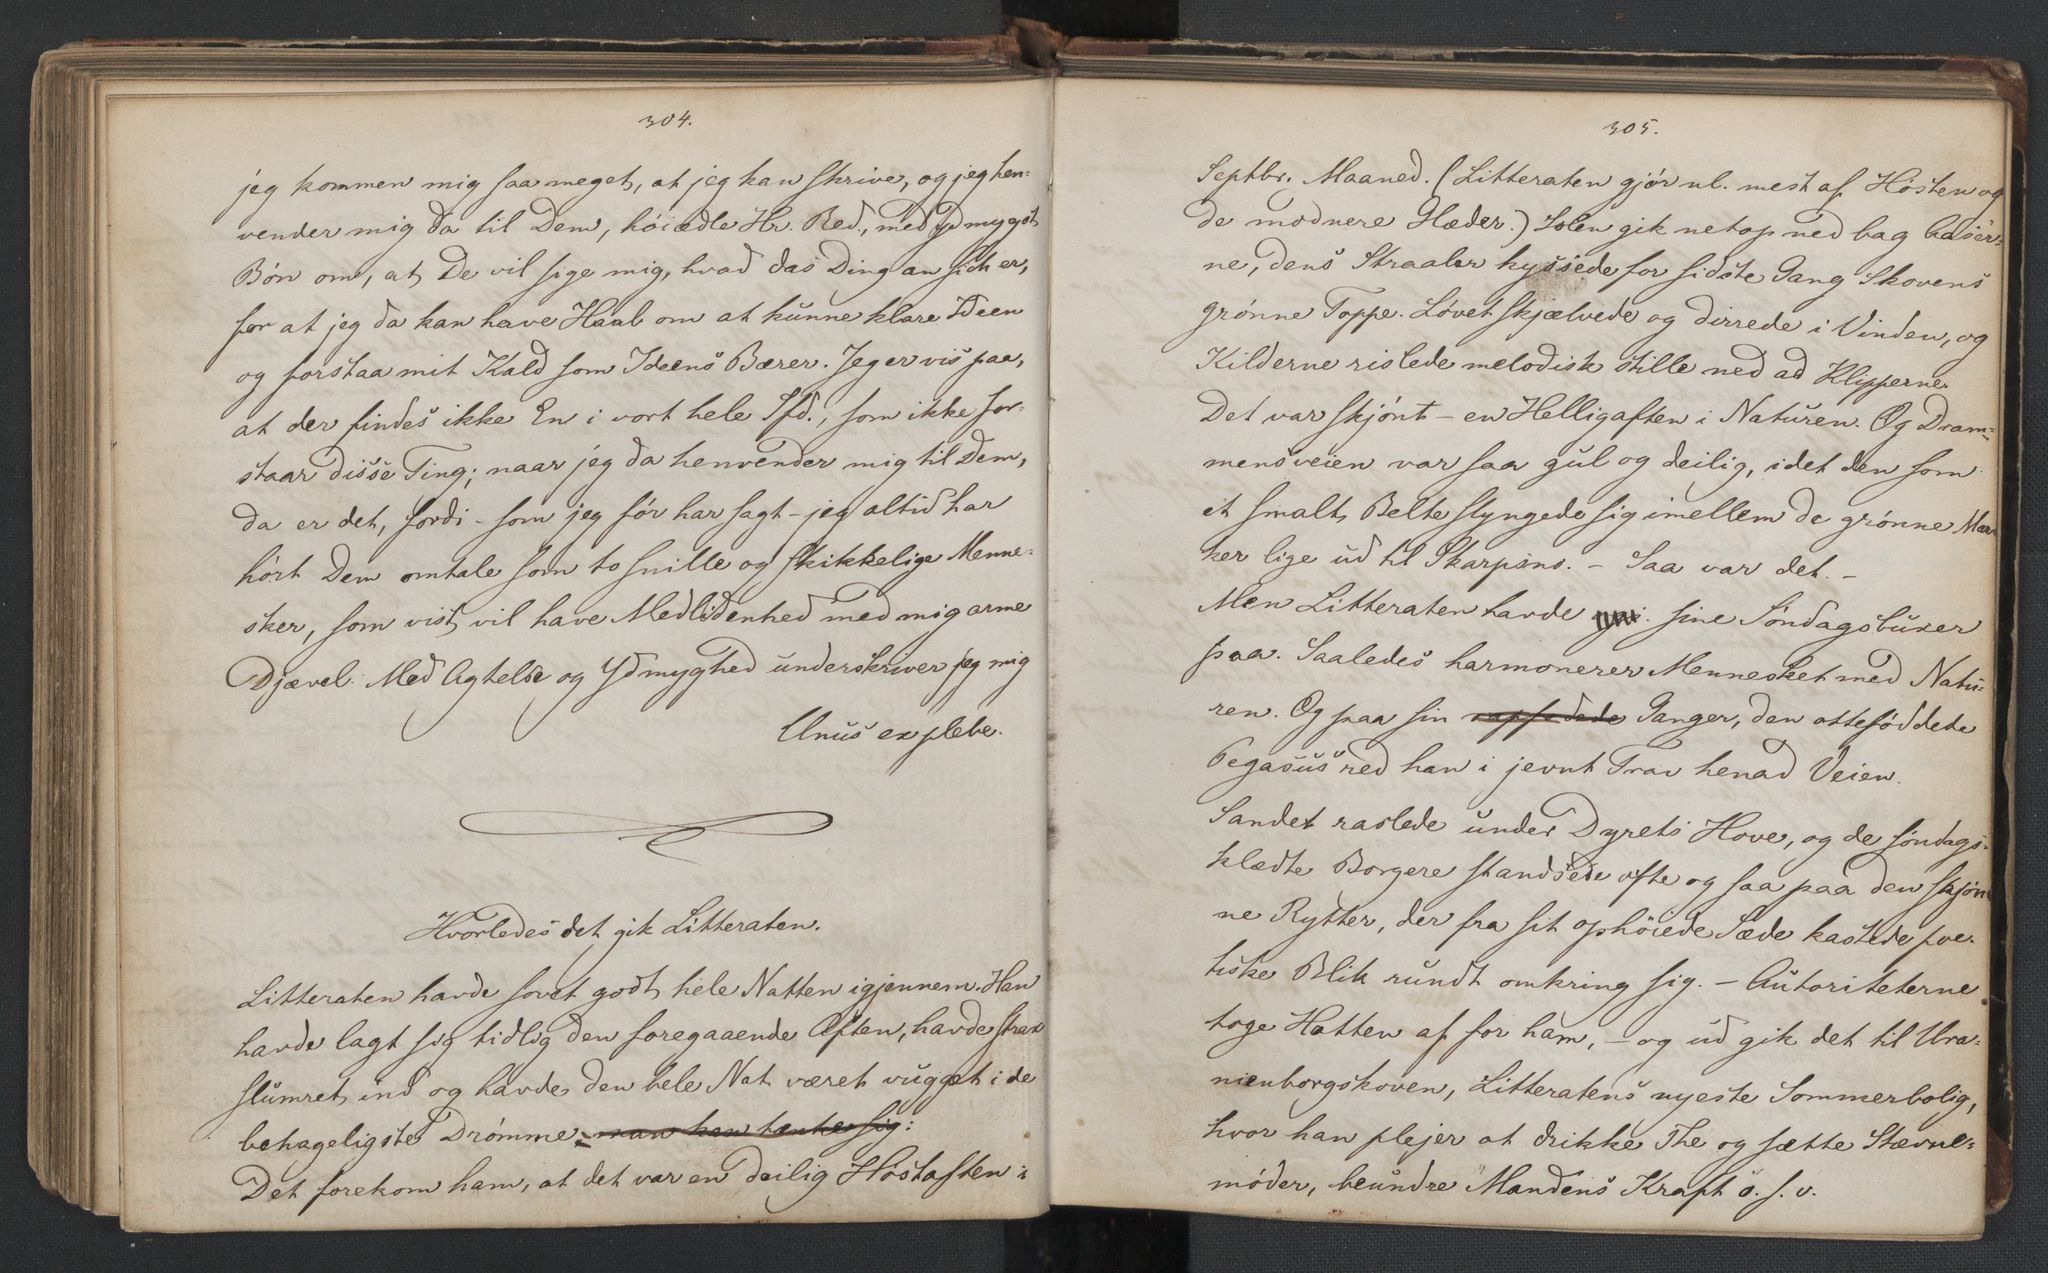 304.
jeg kommen mig saa meget, at jeg kan skrive, og jeg hen-
vender mig da til Dem, höiædle Hr. Red., med ydmygst
Bön om, at De vil sige mig, hvad das Ding an sich er,
for at jeg da kan have Haab om at kunne klare Ideen
og forstaa mit Kald som Ideens Bærer. Jeg er vis paa,
at der findes ikke En i vort hele Sfd., som ikke for-
staar disse Ting; naar jeg da henvender mig til Dem,
da er det, fordi - som jeg för har sagt - jeg altid har
hört Dem omtale som to snille og skikkelige Menne-
sker, som vist vil have Medlidenhed med mig arme
Djævel. Med Agtelse og Ydmyghed underskriver jeg mig
Unus ex plebe.
Hvorledes det gik Litteraten.
Litteraten havde sovet godt hele Natten igjennem. Han
havde lagt sig tidlig den foregaaende Aften, havde strax
slumret ind og havde den hele Nat været vugget i de
behageligste Drömme, man kan tænke sig:
Det forekom ham, at det var en deilig Höstaften i
305.
Septbr. Maaned. (Litteraten gjör nl. mest af Hösten og
de modnere Hæder.) Solen gik netop ned bag Aaser-
ne, dens Straaler kyssede for sidste Gang Skovens
grönne Toppe. Lövet skjælvede og dirrede i Vinden, og
Kilderne rislede melodisk stille ned ad Klipperne.
Det var skjönt - en Helligaften i Naturen. Og Dram-
mensveien var saa gul og deilig, idet den som
et smalt Belte slyngede sig imellem de grönne Mar
ker lige ud til Skarpsno. - Saa var det. -
Men Litteraten havde sine Söndagsbuxer
paa. Saaledes harmonerer Mennesket med Natu-
ren. Og paa sin rapfodede Ganger, den otteföddede
Pegasus red han i jevnt Trav henad Veien.
Sandet raslede under Dyrets Hove, og de söndags-
klædte Borgere standsede ofte og saa paa den skjön
ne Rytter, der fra sit ophöiede Sæde kastede poe-
tiske Blik rundt omkring sig. - Autoriteterne
toge Hatten af for ham, - og ud gik det til Ura-
nienborgskoven, Litteratens nyeste Sommerbolig,
hvor han plejer at drikke The og sætte Stævne-
möder, beundre Mandens Kraft o. s. v.